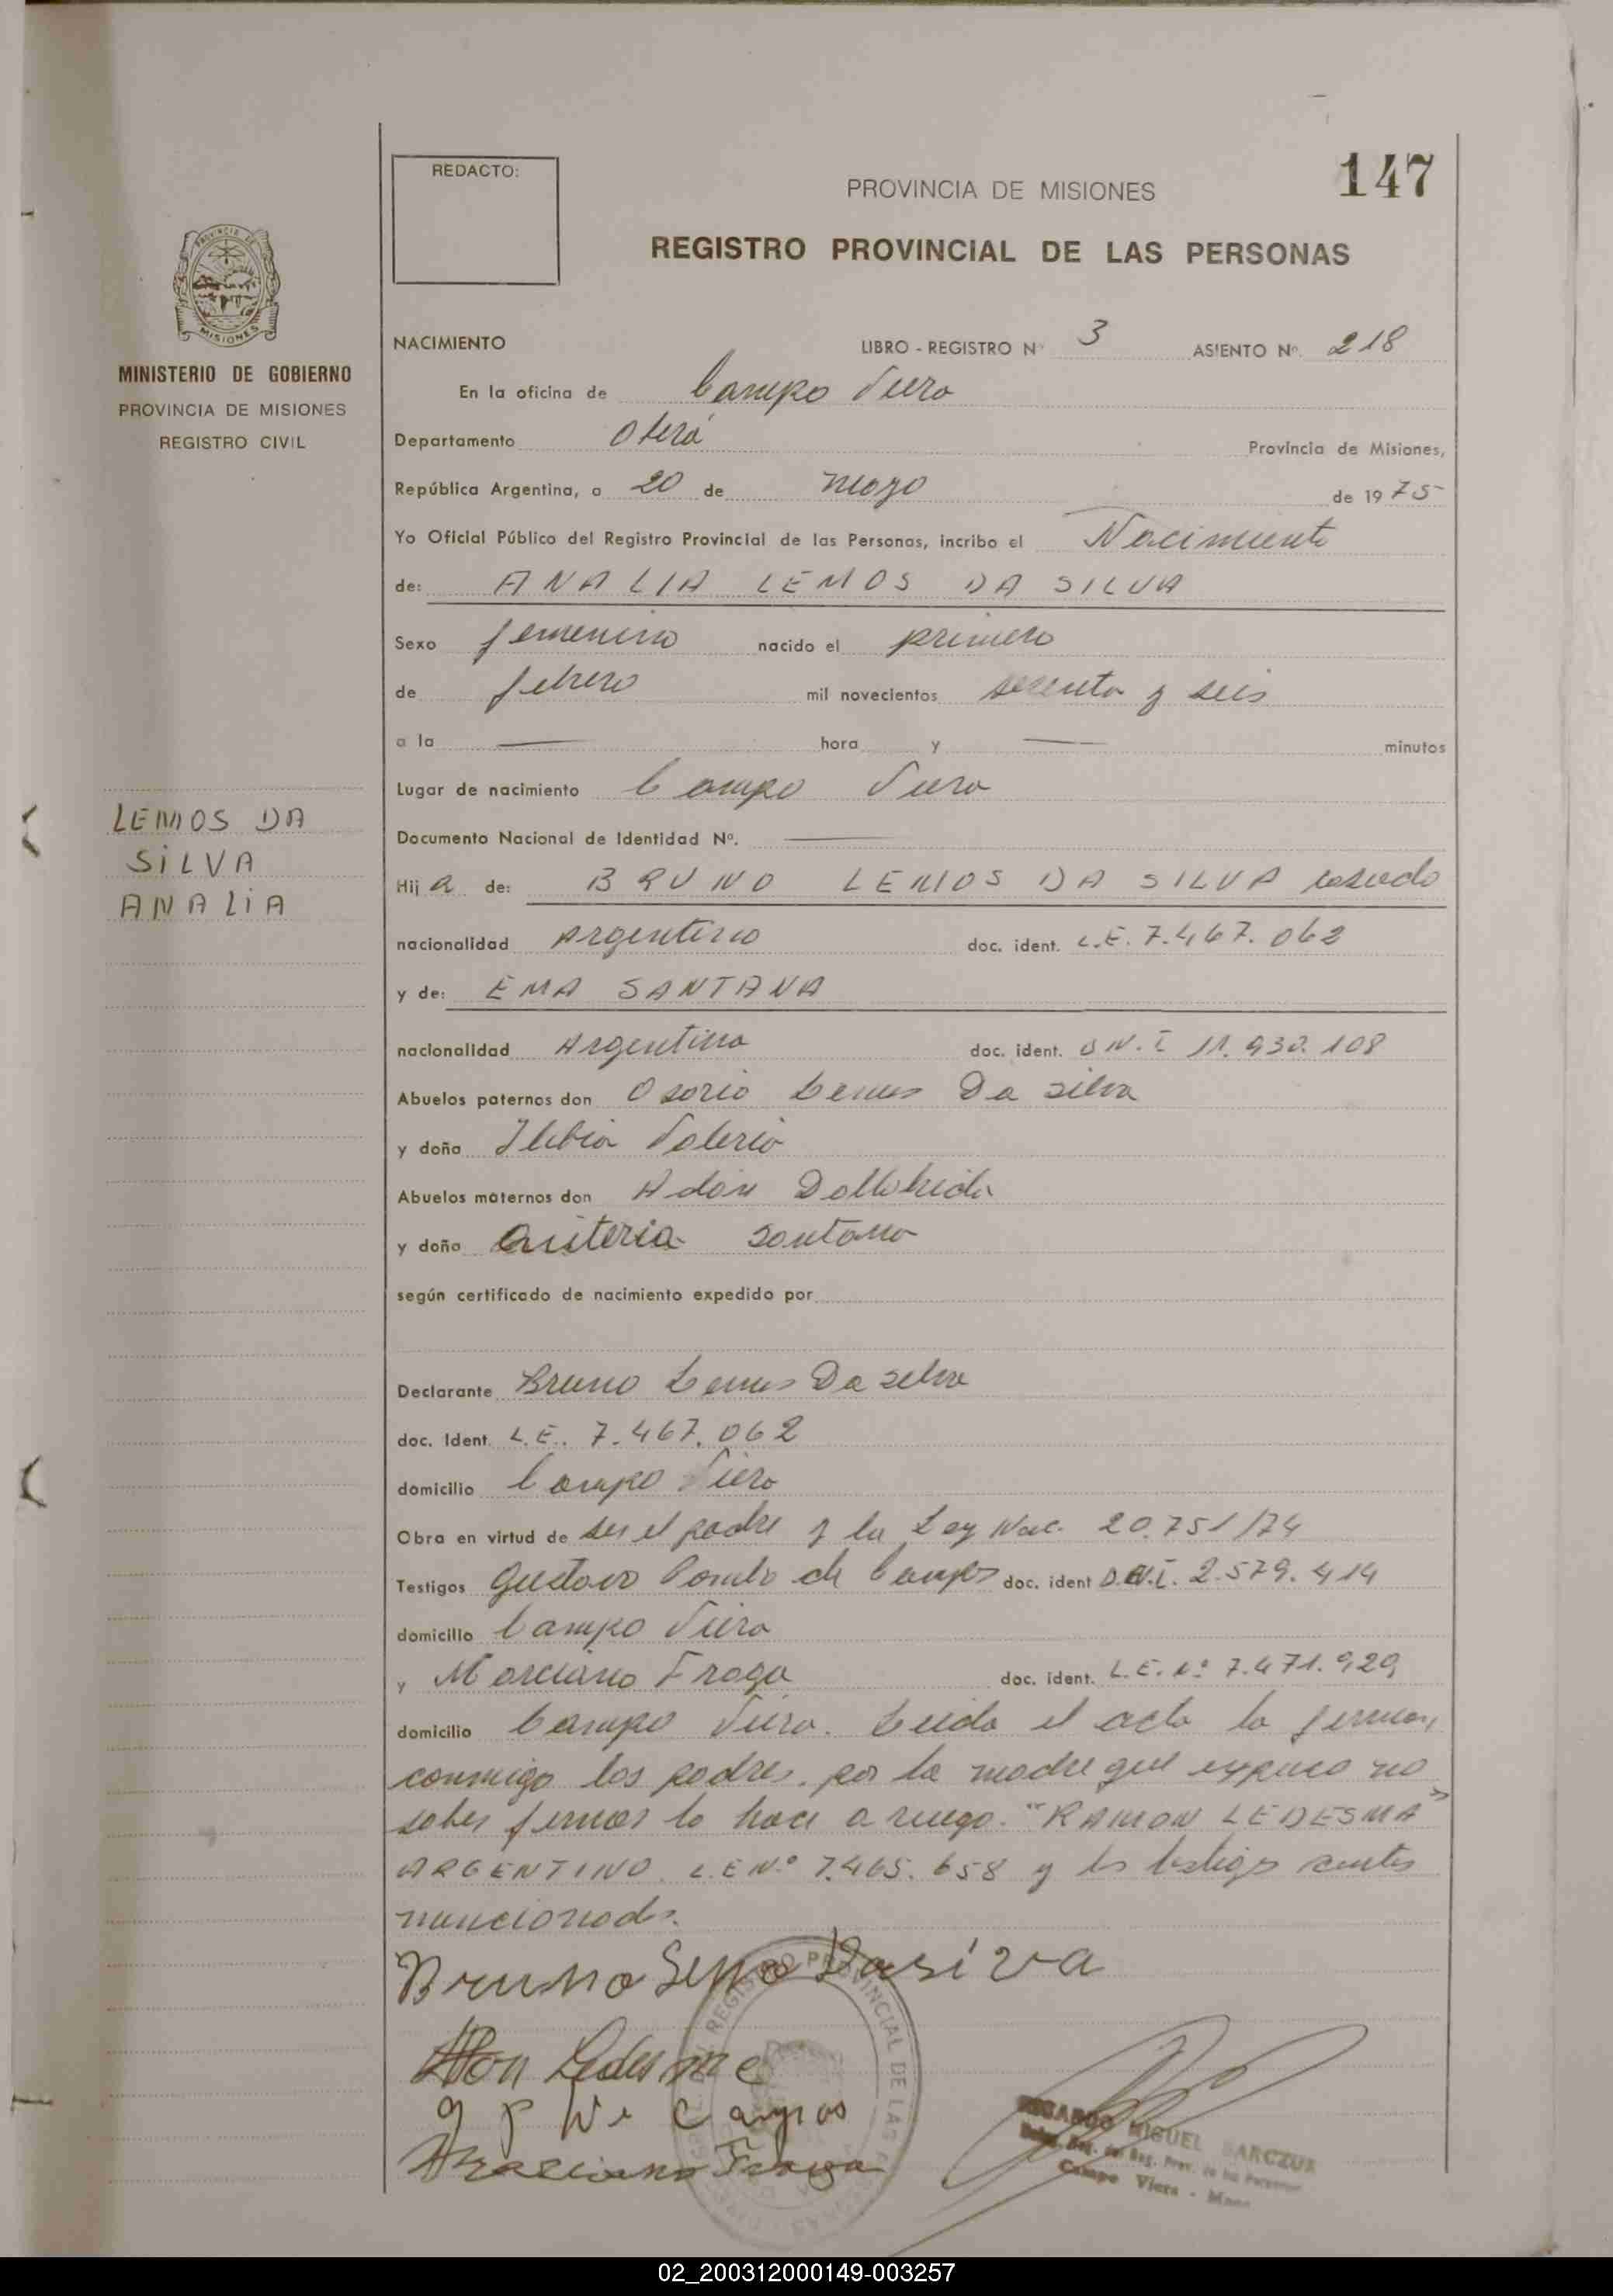 147
REDACTO:
PROVINCIA DE MISIONES
REGISTRO PROVINCIAL DE LAS PERSONAS
PROVINCIA DE
MISIONES
MINISTERIO DE GOBIERNO
PROVINCIA DE MISIONES
REGISTRO CIVIL
LEMOS DA
SILVA
ANALIA
NACIMIENTO LIBRO - REGISTRO Nº 3 ASIENTO Nº. 218
En la oficina de Campo Viera
Departamento Oberá Provincia de Misiones,
República Argentina, a 20 de mayo de 1975
Yo Oficial Público del Registro Provincial de las Personas, incribo el Nacimiento
de: ANALIA LEMOS DA SILVA
Sexo femenino nacido el primero
de febrero mil novecientos sesenta y seis
a la — hora y — minutos
Lugar de nacimiento Campo Viera
Documento Nacional de Identidad Nº. —
Hija de: BRUNO LEMOS DA SILVA casado
nacionalidad Argentino doc. ident. L.E. 7.467.062
y de: EMA SANTANA
nacionalidad Argentina doc. ident. D.N.I 11.930.108
Abuelos paternos don Osorio Lemos Da Silva
y doña Valerio
Abuelos maternos don Adán
y doña Quiteria Santana
según certificado de nacimiento expedido por
Declarante Bruno Lemos Da Silva
doc. Ident. L.E. 7.467.062
domicilio Campo Viera
Obra en virtud de ser el padre y la Ley Nac. 20.751/74
Testigos Gustavo de Campos doc. ident D.N.I. 2.579.414
domicilio Campo Viera
y Marciano Fraga doc. ident. L.E. Nº 7.471.929
domicilio Campo Viera. Leida el acta la firman,
conmigo los padres, por la madre que expuso no
saber firmar lo hace a ruego. "RAMON LEDESMA"
ARGENTINO. L.E Nº 7.465.658 y los testigos antes
mencionados.
Bruno Lemo Dasiva
Ledesme
g p de Campos
Marciano Fraga
REGISTRO PROVINCIAL DE LAS
RICARDO MIGUEL
Campo Viera - Mnes
02_200312000149-003257